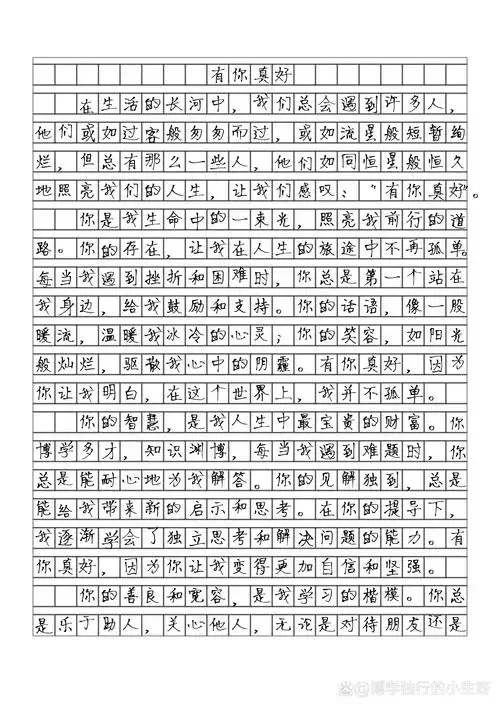 有你真好
在生活的长河中，我们总会遇到许多人，
他们或如过客般匆匆而过，或如流星般短暂绚
烂，但总有那么一些人，他们如同恒星般恒久
地照亮我们的人生，让我们感叹："有你真好"。
你是我生命中的一束光，照亮我前行的道
路。你的存在，让我在人生的旅途中不再孤单。
每当我遇到挫折和困难时，你总是第一个站在
我身边，给我鼓励和支持。你的话语，像一股
暖流，温暖我冰冷的心灵；你的笑容，如阳光
般灿烂，驱散我心中的阴霾。有你真好，因为
你让我明白，在这个世界上，我并不孤单。
你的智慧，是我人生中最宝贵的财富。你
博学多才，知识渊博，每当我遇到难题时，你
总是能耐心地为我解答。你的见解独到，总是
能给我带来新的启示和思考。在你的提导下，
我逐渐学会了独立思考和解决问题的能力。有
你真好，因为你让我变得更加自信和坚强。
你的善良和宽容，是我学习的楷模。你总
是乐于助人，关心他人，无论是对待朋友还是
博学独行的小生哥